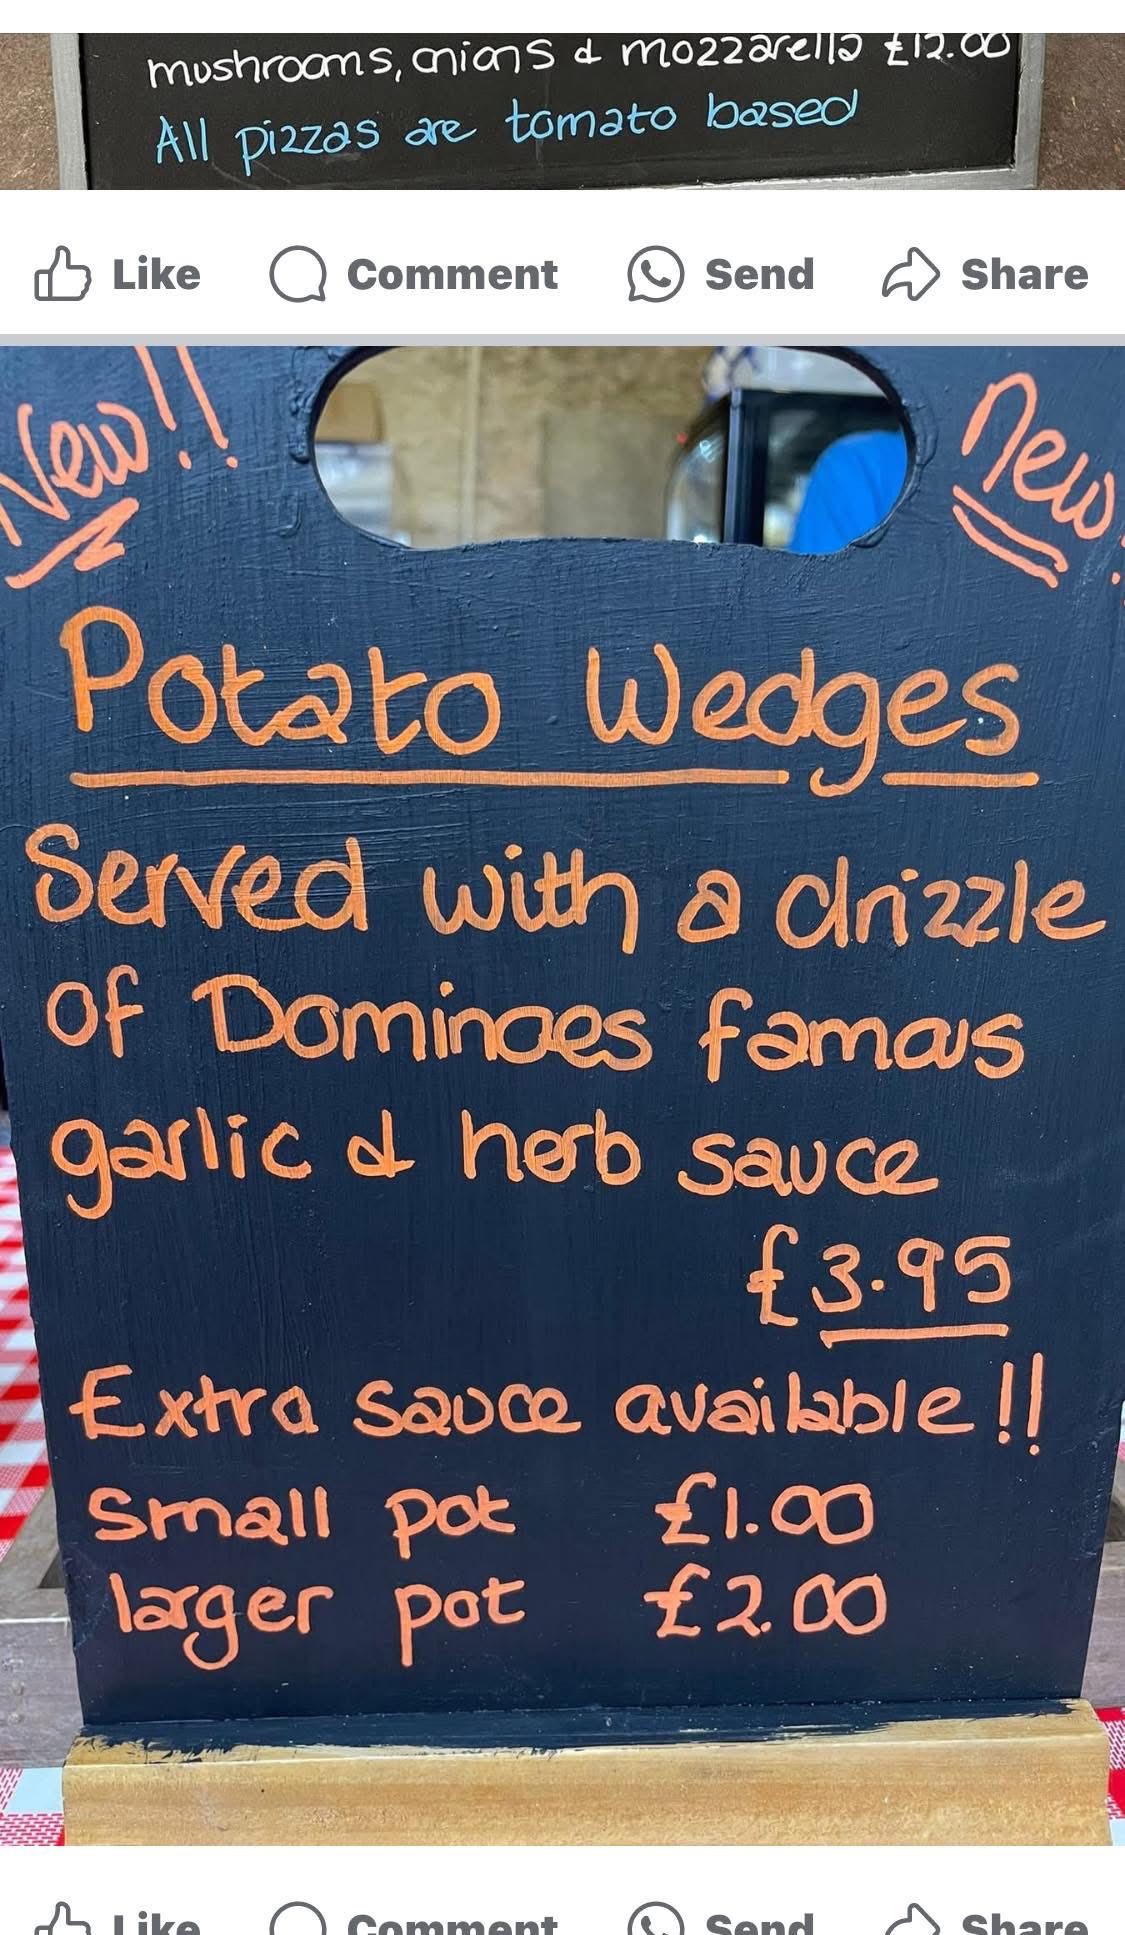 mushrooms, onions & mozzarella £12.00
All pizzas are tomato based
Like Comment Send Share
New!! New!
Potato Wedges
Served with a drizzle
of Dominoes famous
garlic & herb sauce
£3.95
Extra sauce available!!
small pot £1.00
larger pot £2.00
Like Comment Send Share